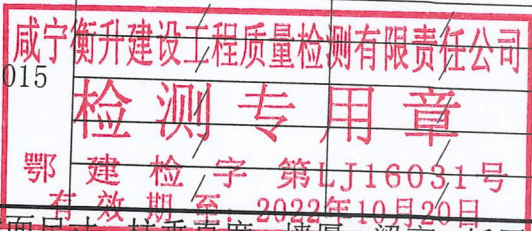 咸宁衡升建设工程质量检测有限责任公司
015
检测专用章
鄂建检字第LJ16031号
有效期至:2022年10月20日